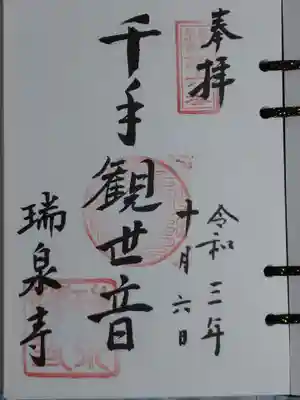 奉拝
令和三年
十月六日
千手観世音
瑞泉寺